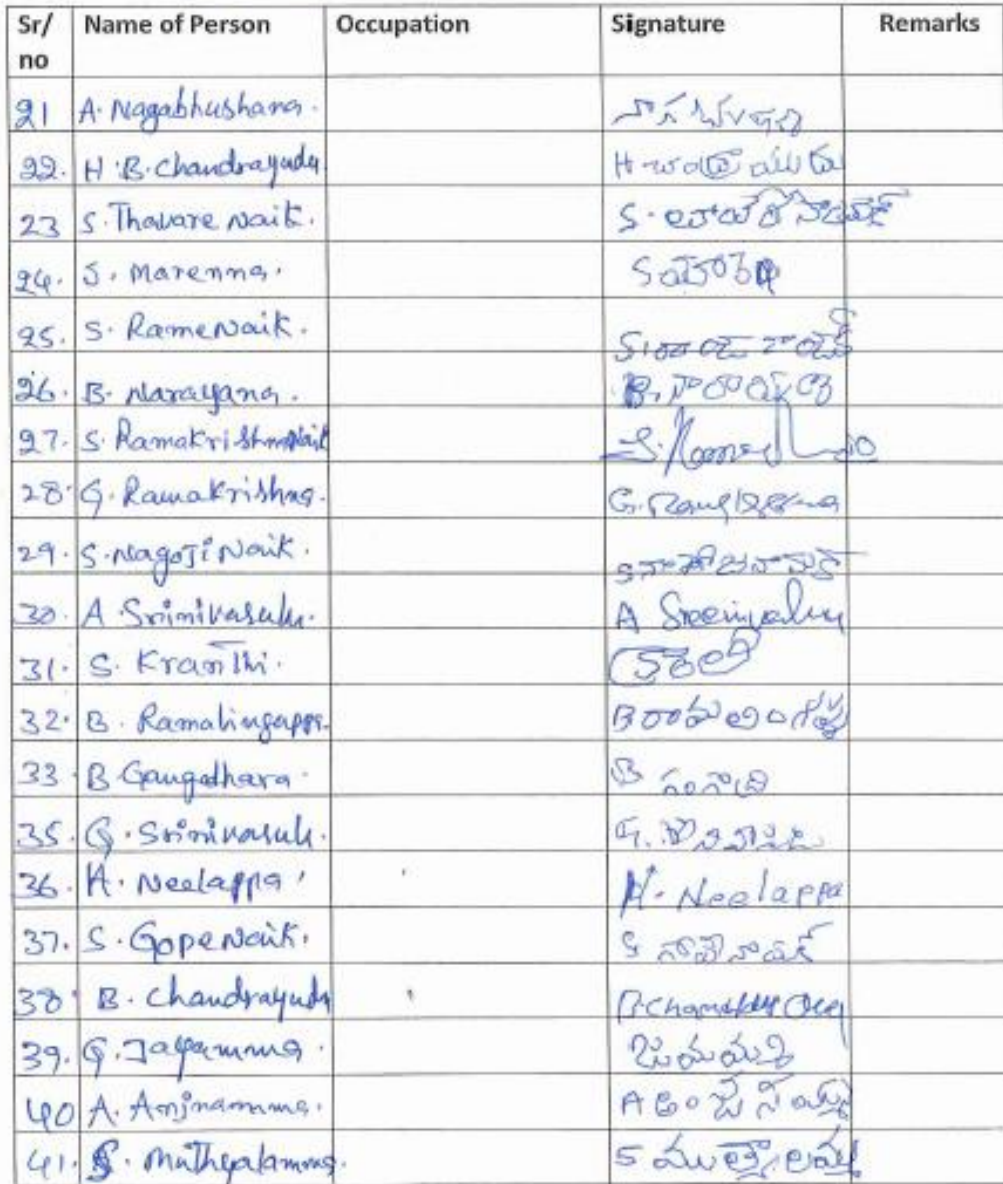 Sr/no Name of Person Occupation Signature Remarks
21 A. Nagabhushana. నాగభూషణ
22. H.B. Chandrayudu H చంద్రాయుడు
23 S. Thavare Naik. S.
24. S. Marenna. S
25. S. Rame Naik. S. రామే నాయక్
26. B. Narayana. B. నారాయణ
27. S. Ramakrishna Naik S.
28. G. Ramakrishna. G.
29. S. Nagoji Naik. S నాగోజి నాయక్
30. A Srinivasulu. A
31. S. Kranthi. క్రాంతి
32. B. Ramalingappa. B రామలింగప్ప
33 B Gangadhara. B
35. G. Srinivasulu. G. శ్రీనివాసులు
36. H. Neelappa. H. Neelappa
37. S. Gope Naik. S గోపే నాయక్
38. B. Chandrayudu B
39. G. Jayamma. జయమ్మ
40 A. Anjinamma. A అంజినమ్మ
41. S. Muthyalamma. S ముత్యాలమ్మ